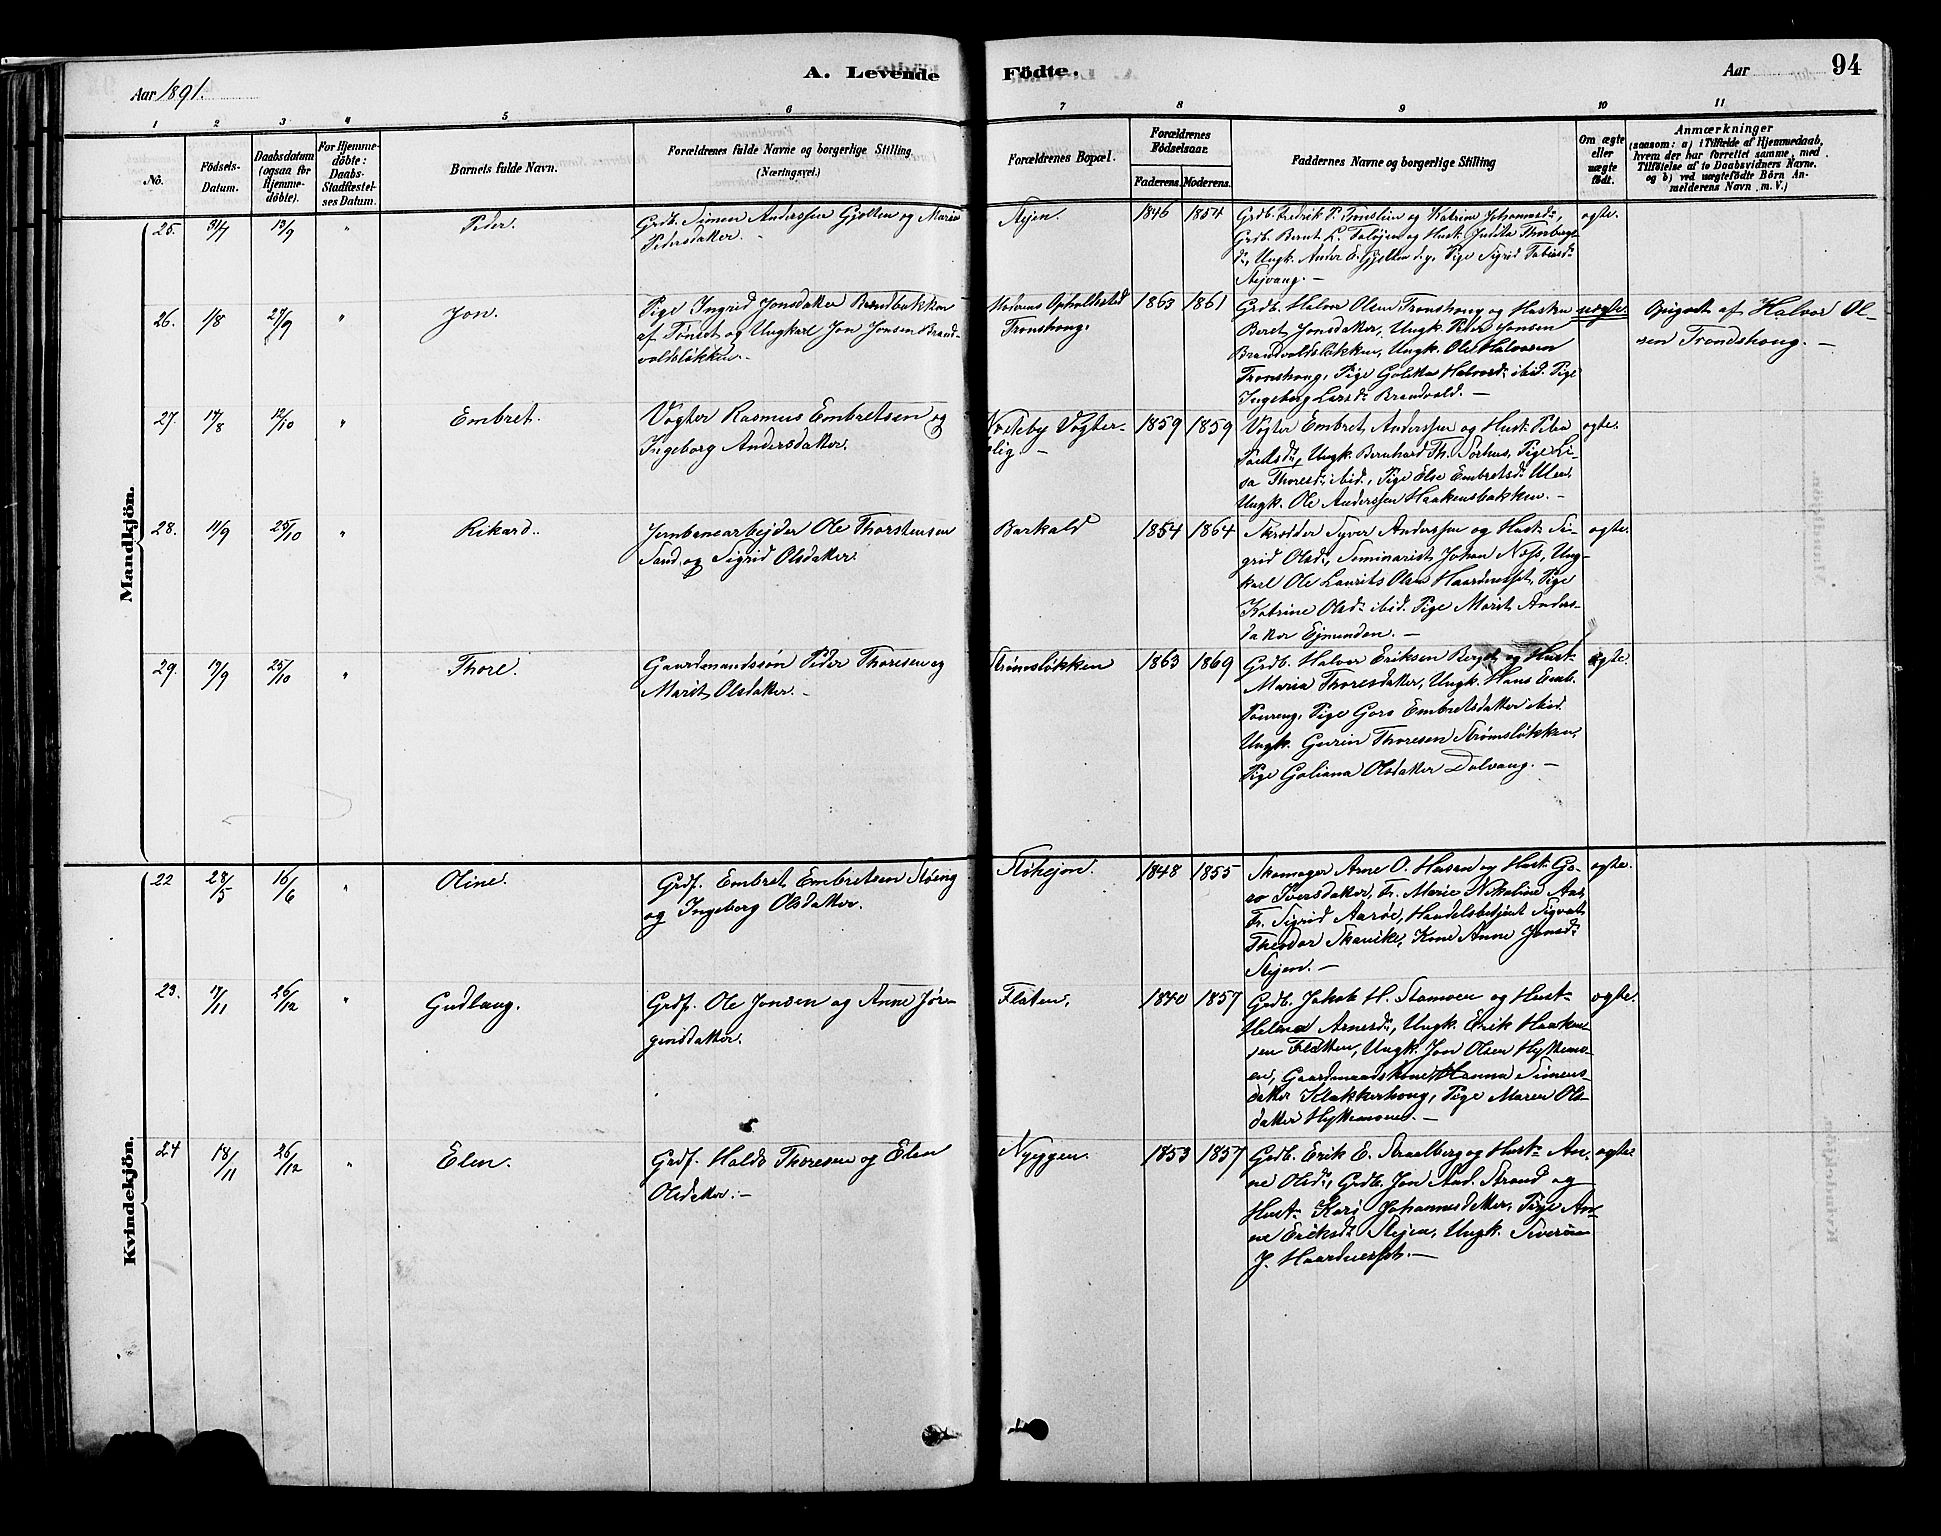 A. Levende
Födte.
Aar 1891.
Aar
94
1 2 3 4 5 6 7 8 9 10 11
No.
Födsels-
Datum.
Daabsdatum
(ogsaa for
Hjemme-
döbte).
For Hjemme-
döbte:
Daabs-
Stadfæstel-
ses Datum.
Barnets fulde Navn.
Forældrenes fulde Navne og borgerlige Stilling
(Næringsvei.)
Forældrenes Bopæl.
Forældrenes
Födselsaar.
Faderens. Moderens.
Faddernes Navne og borgerlige Stilling
Om ægte
eller
uægte
født.
Anmærkninger
(saasom: a) i Tilfælde af Hjemmedaab,
hvem der har forrettet samme, med
Tilföielse af to Daabsvidners Navne,
og b) ved uægtefödte Börn An-
melderens Navn m. V.)
Mandkjön.
25. 31/7 13/9 " Peder.
Grdb. Simen Anderssen Gjelten og Marie
Pedersdatter. -
Stejen.
1846 1854
Grdb. Fredrik P. Tronslien og Katrine Johannesdr,
Grdb. Bernt L. Taløjen og Hust. Judita Thorbergs
dr, Ungk. Ander E. Gjelten d.y. Pige Sigrid Tobiasdr
Stejvang. -
ægte.
26. 1/8 27/9 " Jon.
Pige Ingrid Jonsdatter Brandbakken
af Tønset og Ungkarl Jon Jonsen Brand-
voldsløkken. -
Moderens Opholdssted
Tronshoug.
1863 1861
Grdb. Halvor Olsen Tronshoug og Hustru
Beret Jonsdatter, Ungk. Peder Jonsen
Brandvoldsløkken, Ungk. Ole Halvorsen
Tronshoug, Pige Goletta Halvorsdr ibid. Pige
Ingeborg Larsdr Brandvold. -
uægte.
Opgivet af Halvor Ol-
sen Trondshoug. -
27. 17/8 12/10 " Embret.
Vogter Rasmus Embretsen og
Ingeborg Andersdatter.
Nesteby Vogter-
bolig. -
1859 1859
Vogter Embret Anderssen og Hust.
Poulsdr, Ungk. Bernhard Th. Sørhus, Pige Li-
sa Thoresdr ibid., Pige Else Embretsdr Ulen,
Ungk. Ole Anderssen Haakensbakken. -
ægte.
28. 11/9 25/10 " Rikard.
Jernbanearbejder Ole Thorstensen
Sand og Sigrid Olsdatter.
Barkald
1854 1864
Skrædder Syver Anderssen og Hust. Si-
grid Olsdr, Seminarist Johan Næss, Ung-
karl Ole Laurits Olsen Haardnesset, Pige
Katrine Olsdr ibid. Pige Marit Anders-
datter Ejmunden. -
ægte.
29. 17/9 25/10 " Thore.
Gaardmandssøn Peder Thoresen og
Marit Olsdatter. -
Strømsløkken
1863 1869
Grdb. Halvor Eriksen Berget og Hust.
Maria Thoresdatter, Ungk. Hans Emb.
Poureng, Pige Goro Embretsdatter ibid.
Ungk. Gurin Thoresen Strømsløkken,
Pige Goliana Olsdatter Dalvang. -
ægte.
Kvindekjön.
22 28/5 16/6 " Oline.
Grdf. Embret Embretsen Støeng
og Ingeborg Olsdatter.
Støkejen.
1848 1855
Skomager Arne O. Husan og Hust. Go-
ro Iversdatter, Fr. Marie Nikoline Aas,
Fr. Sigrid Aarøe, Handelsbetjent Sigvat
Theodor Skavike, Kone Anne Jonsdr
Stejen. -
ægte.
23. 17/11 26/12 " Gudlaug.
Grdf. Ole Jonsen og Anne Jør-
gensdatter.
Flaten.
1840 1857
Grdb. Jakob H. Stamoen og Hust.
Helena Arnesdr, Ungk. Erik Haakon-
sen Flatten, Ungk. Jon Olsen Hyttemo-
en, Gaardmandskone Hanna Simens-
datter Klokkerhoug, Pige Maren Ols-
datter Hyttemoen. -
ægte.
24 18/11 26/12 " Elen.
Grdf. Haldo Thoresen og Elen
Olsdatter. -
Nyeggen.
1853 1857
Grdb. Erik E. Straalberg og Hust. An-
ne Olsdr, Grdb. Jon And. Strand og
Hust. Kari Johannesdatter, Pige An-
ne Eriksdr Stejen, Ungk. Siverin
J. Haardnesset. -
ægte.